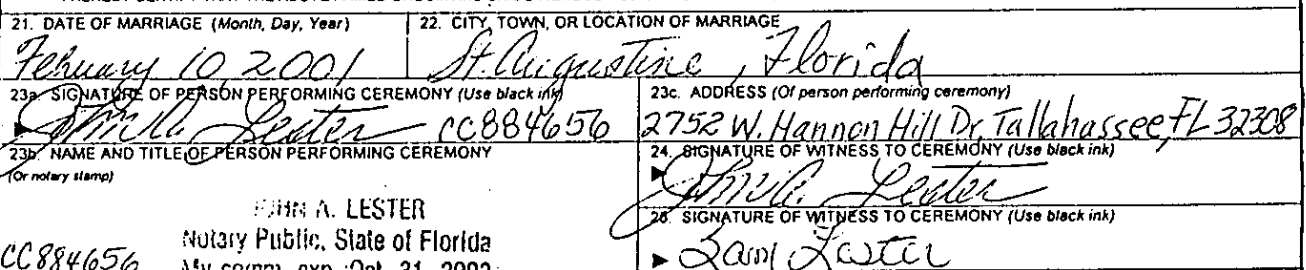 21. DATE OF MARRIAGE (Month, Day, Year)
22. CITY, TOWN, OR LOCATION OF MARRIAGE
February 10, 2001
St. Augustine, Florida
23a. SIGNATURE OF PERSON PERFORMING CEREMONY (Use black ink)
John A. Lester CC884656
23c. ADDRESS (Of person performing ceremony)
2752 W. Hannon Hill Dr, Tallahassee, FL 32308
23b. NAME AND TITLE OF PERSON PERFORMING CEREMONY
(Or notary stamp)
JOHN A. LESTER
Notary Public, State of Florida
CC884656
My comm. exp. Oct. 31,
24. SIGNATURE OF WITNESS TO CEREMONY (Use black ink)
John A. Lester
SIGNATURE OF WITNESS TO CEREMONY (Use black ink)
Lester